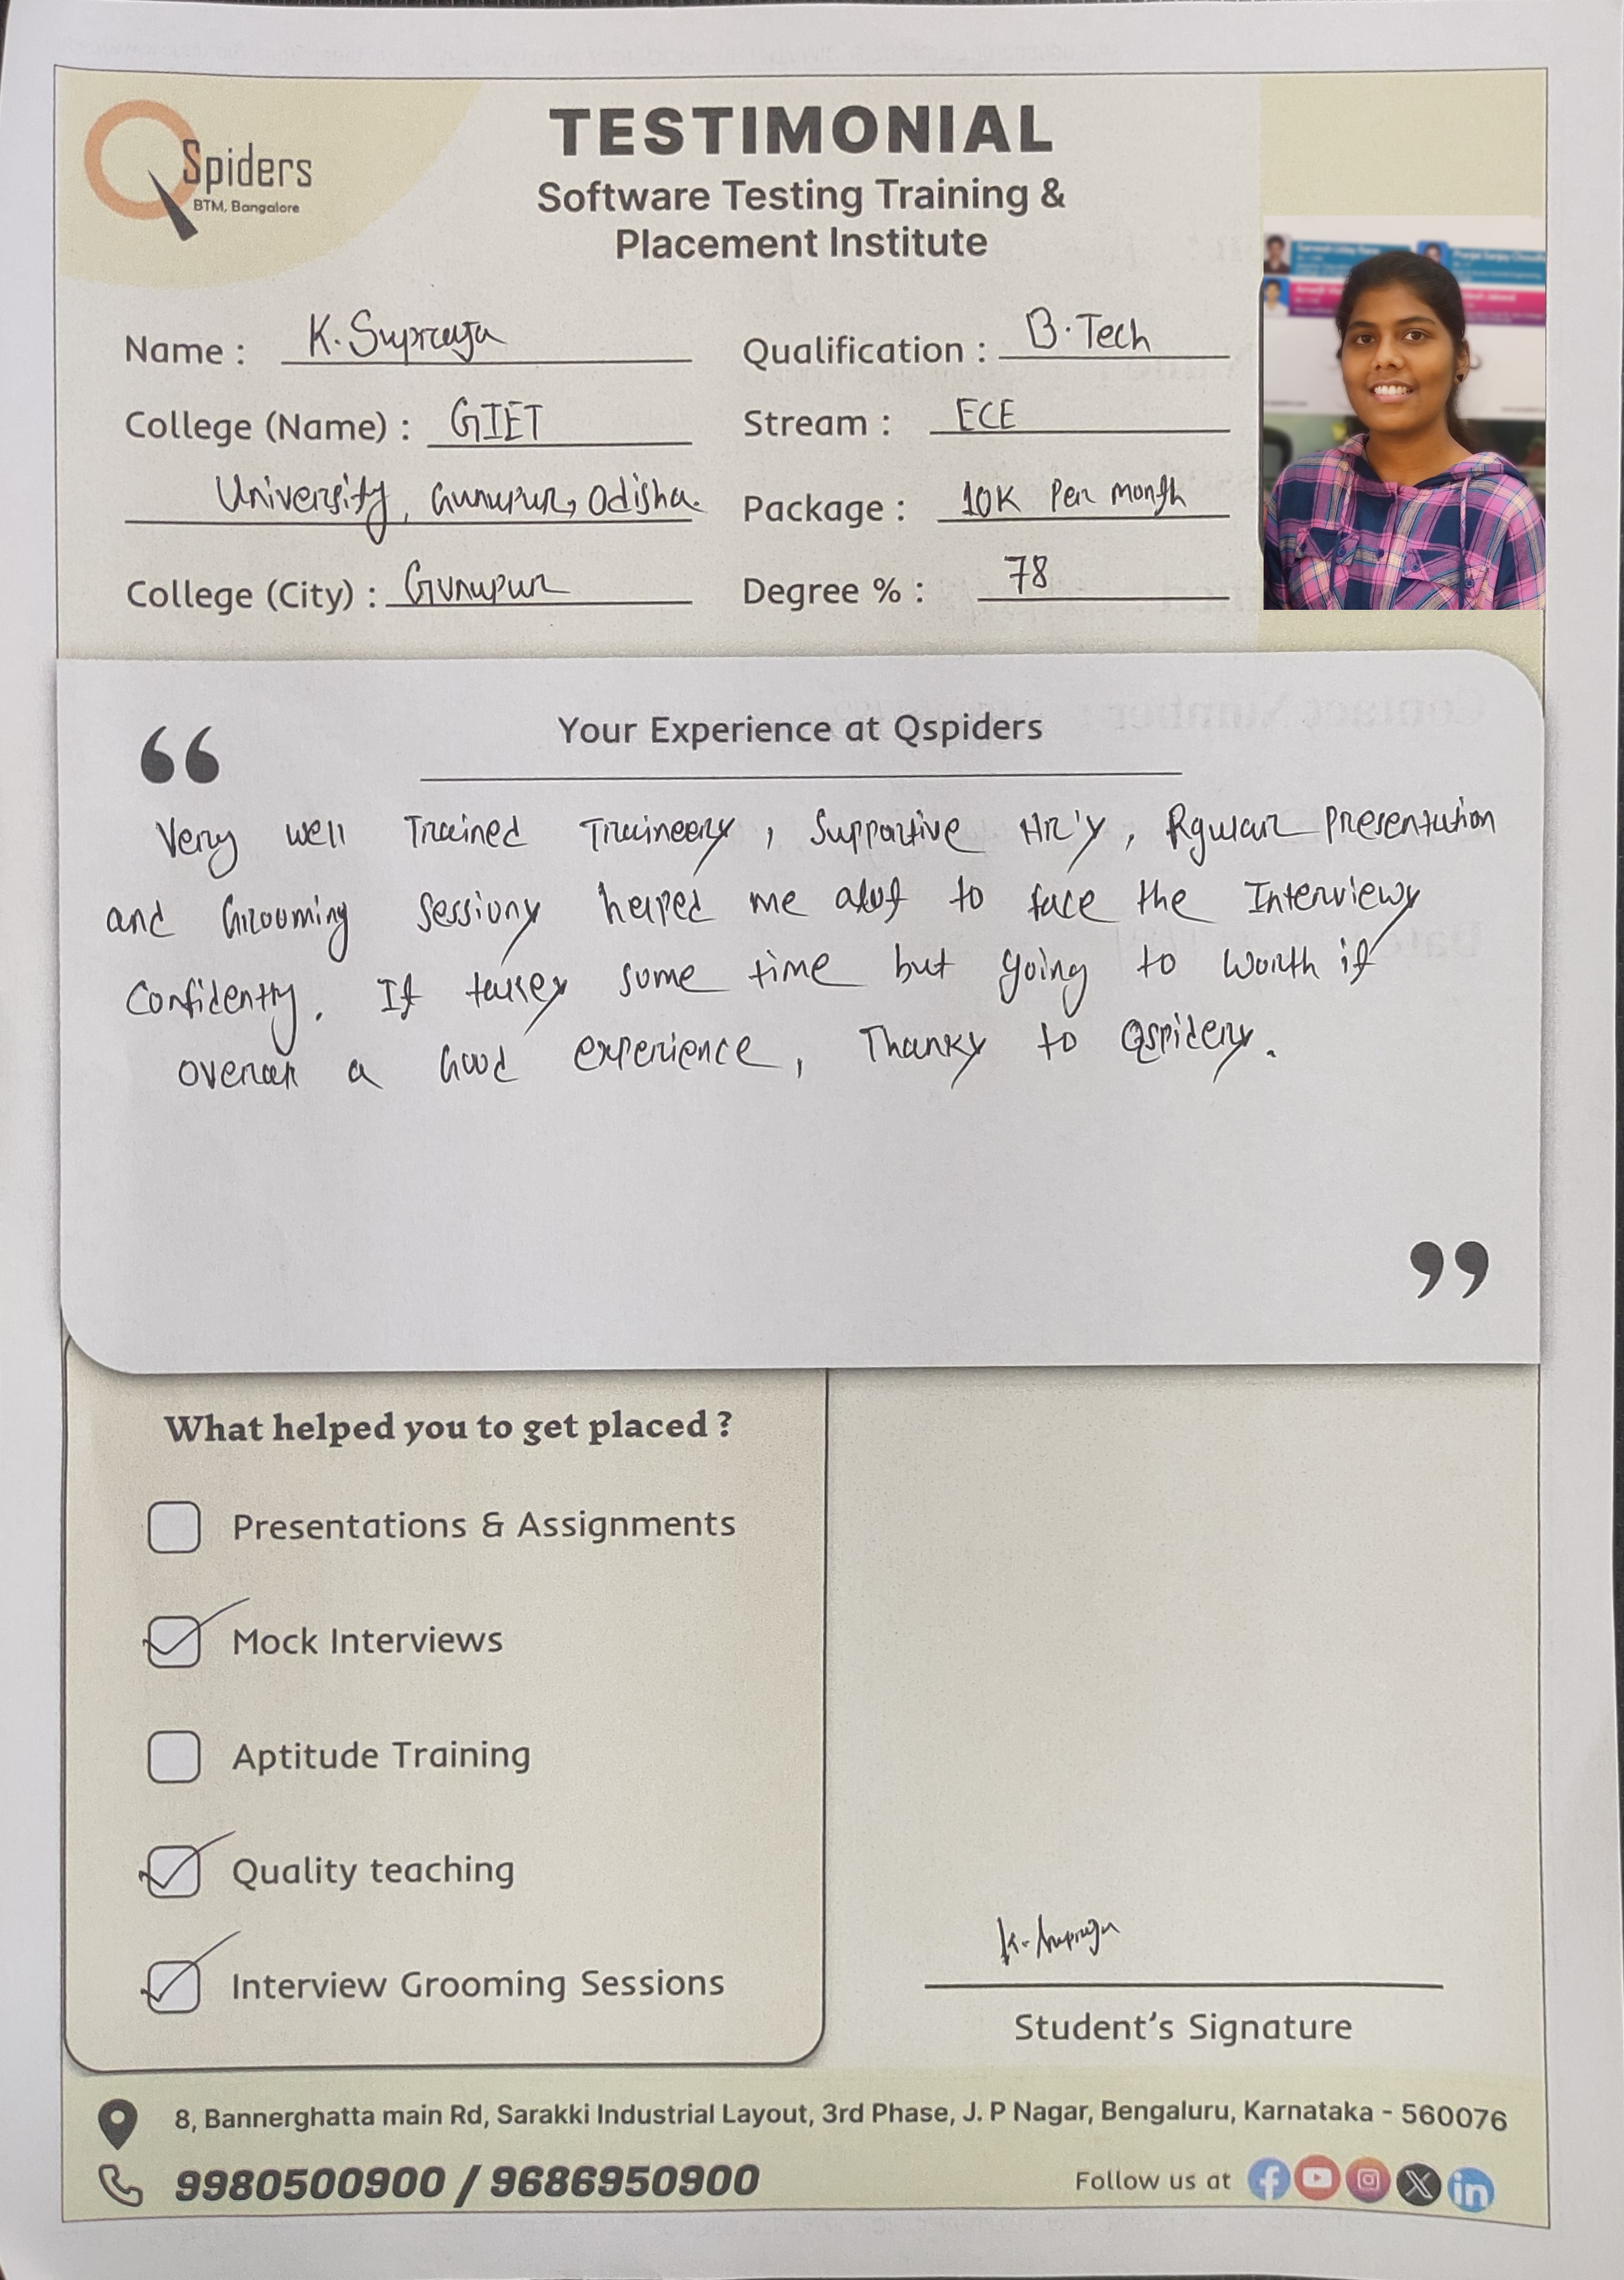 QSpiders
BTM, Bangalore
TESTIMONIAL
Software Testing Training &
Placement Institute
Name : K. Supraja
Qualification : B.Tech
College (Name) : GIET
Stream : ECE
University, Gunupur, Odisha.
Package : 10K Per month
College (City) : Gunupur
Degree % : 78
“
Your Experience at Qspiders
Very well Trained Trainers, Supportive HR's, Rgular presentation
and Grooming sessions helped me alot to face the Interviews
Confidently. It takes some time but going to worth it
overall a Good experience, Thanks to Qspiders.
”
What helped you to get placed ?
Presentations & Assignments
Mock Interviews
Aptitude Training
Quality teaching
Interview Grooming Sessions
K. Supraja
Student's Signature
8, Bannerghatta main Rd, Sarakki Industrial Layout, 3rd Phase, J. P Nagar, Bengaluru, Karnataka - 560076
9980500900 / 9686950900
Follow us at